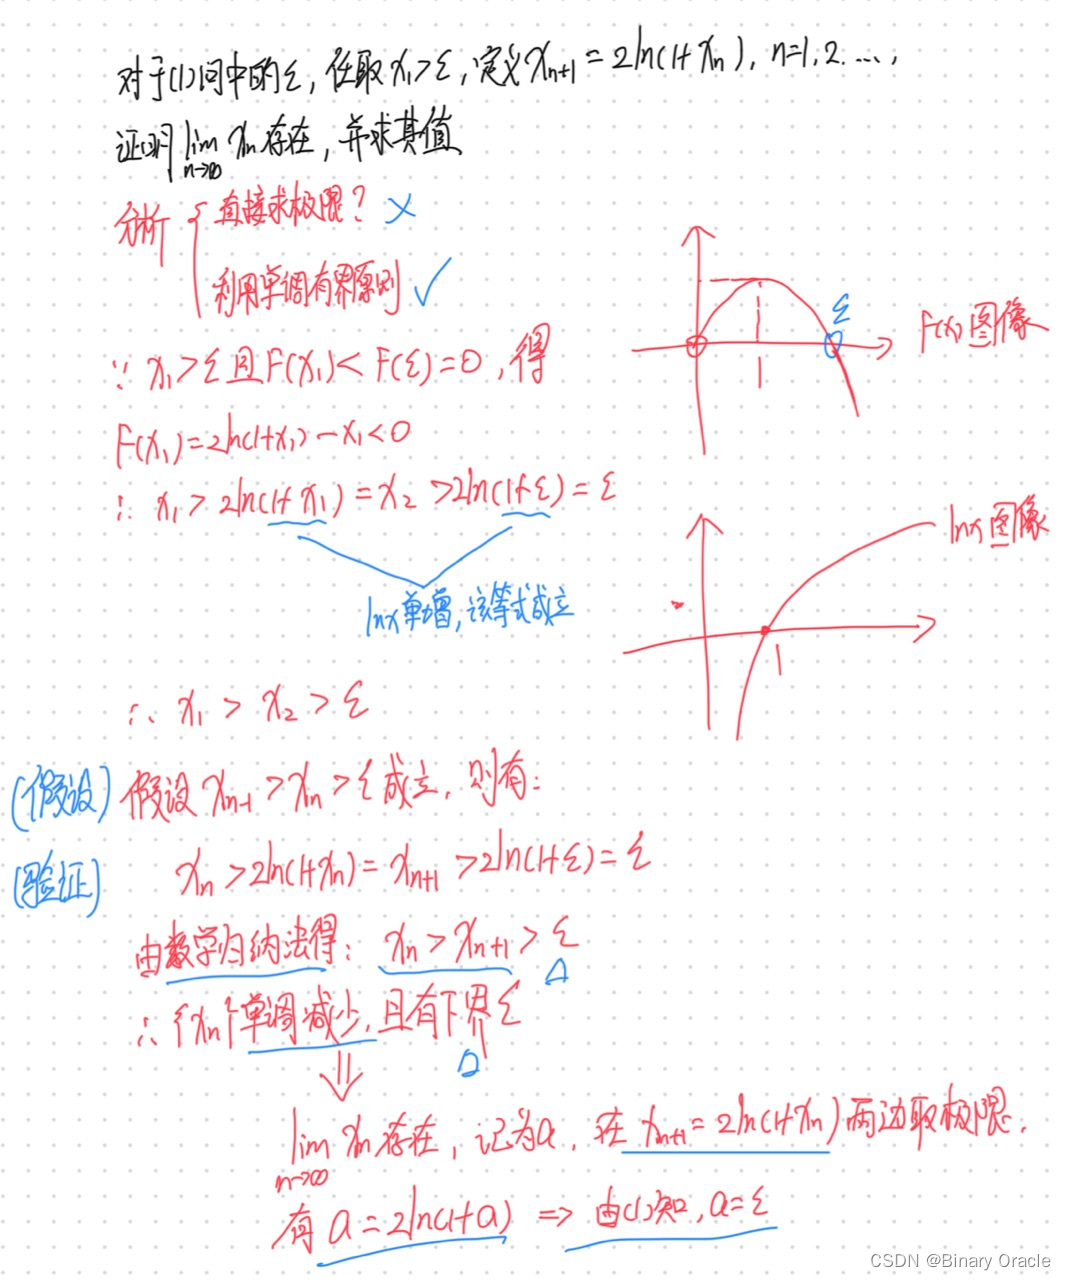 对于(1)问中的ξ, 任取x₁>ξ, 定义xₙ₊₁=2ln(1+xₙ), n=1,2...,
证明lim xₙ存在, 并求其值
n→∞
分析 { 直接求极限? ×
利用单调有界原则 ✓
∵ x₁>ξ且F(x₁)<F(ξ)=0, 得
F(x₁)=2ln(1+x₁)-x₁<0
∴ x₁>2ln(1+x₁)=x₂>2ln(1+ξ)=ξ
lnx单增, 该等式成立
ξ
F(x)图像
1
lnx图像
1
∴ x₁>x₂>ξ
(假设) 假设xₙ₋₁>xₙ>ξ成立, 则有:
(验证) xₙ>2ln(1+xₙ)=xₙ₊₁>2ln(1+ξ)=ξ
由数学归纳法得: xₙ>xₙ₊₁>ξ
∴ {xₙ}单调减少, 且有下界ξ
⇓
lim xₙ存在, 记为a, 在xₙ₊₁=2ln(1+xₙ)两边取极限.
n→∞
有 a=2ln(1+a) ⇒ 由(1)知, a=ξ
CSDN @Binary Oracle